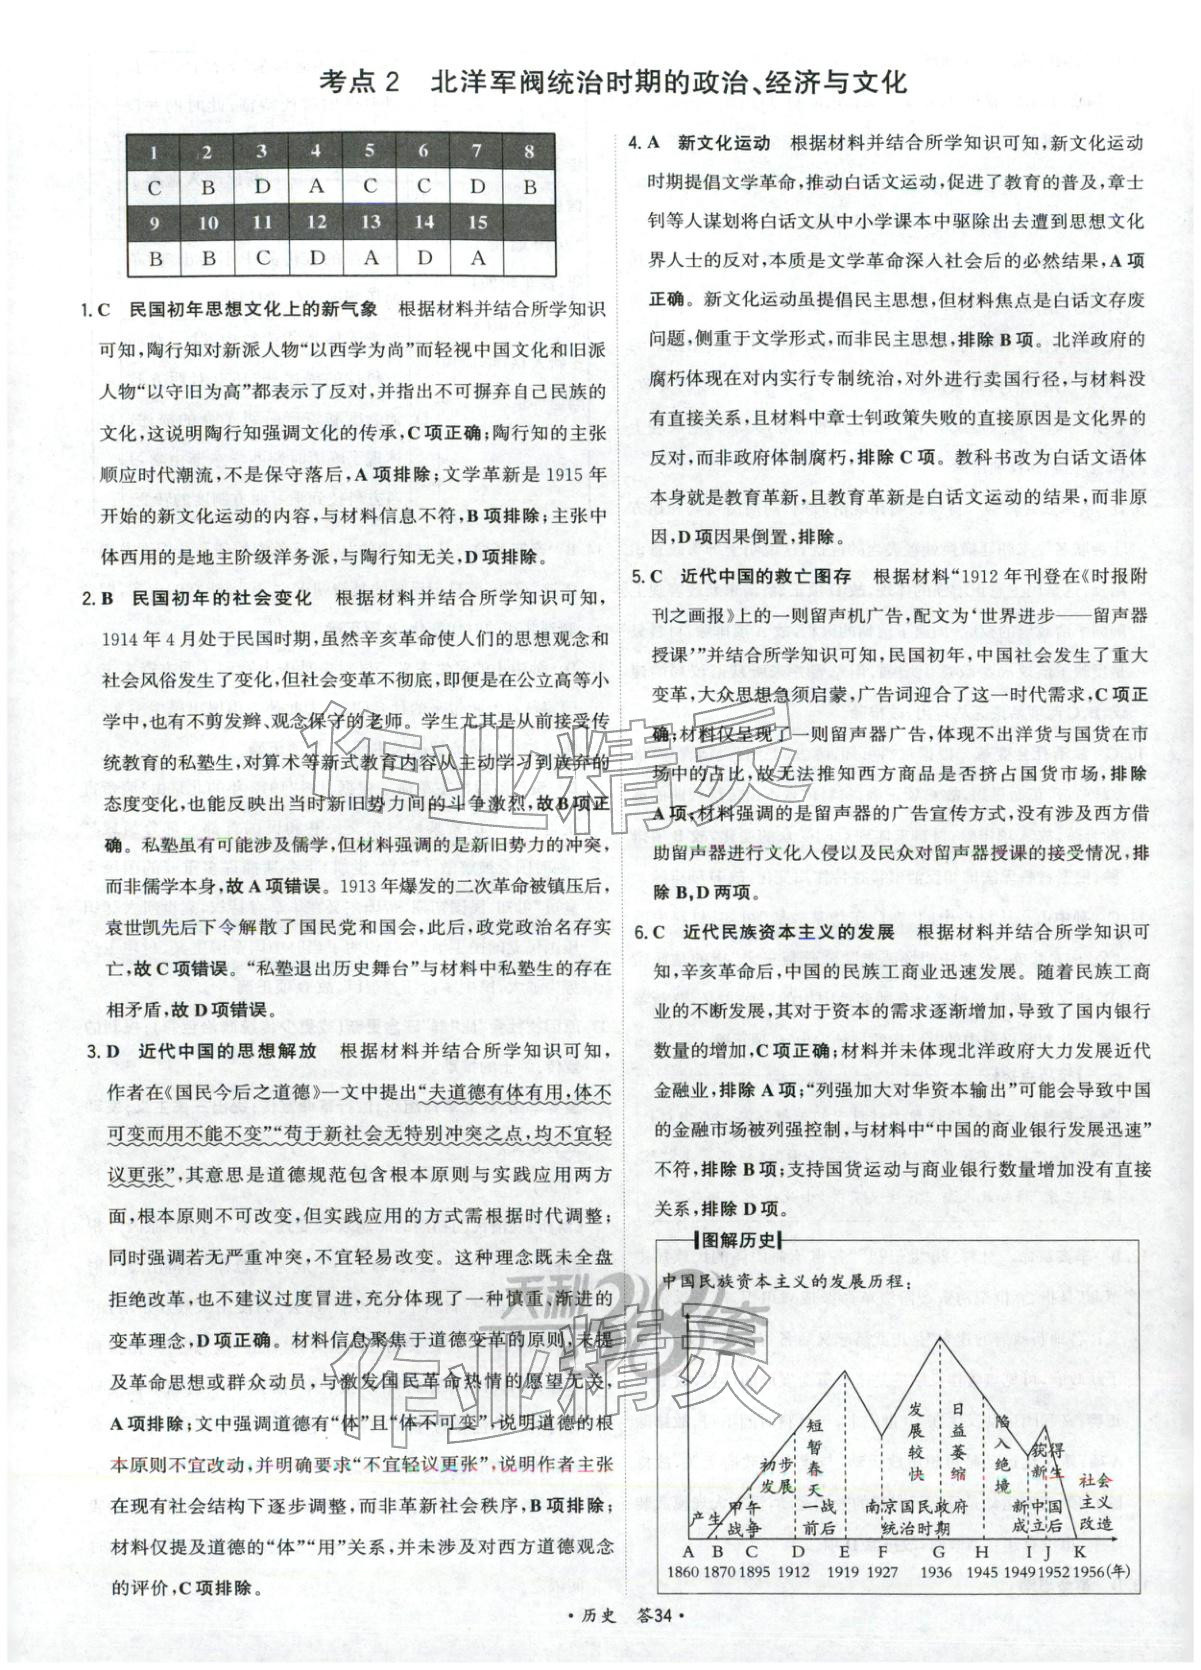 考点2 北洋军阀统治时期的政治、经济与文化
1 2 3 4 5 6 7 8
C B D A C C D B
9 10 11 12 13 14 15
B B C D A D A
1. C 民国初年思想文化上的新气象 根据材料并结合所学知识
可知,陶行知对新派人物“以西学为尚”而轻视中国文化和旧派
人物“以守旧为高”都表示了反对,并指出不可摒弃自己民族的
文化,这说明陶行知强调文化的传承,C项正确;陶行知的主张
顺应时代潮流,不是保守落后,A项排除;文学革新是1915年
开始的新文化运动的内容,与材料信息不符,B项排除;主张中
体西用的是地主阶级洋务派,与陶行知无关,D项排除。
2. B 民国初年的社会变化 根据材料并结合所学知识可知,
1914年4月处于民国时期,虽然辛亥革命使人们的思想观念和
社会风俗发生了变化,但社会变革不彻底,即便是在公立高等小
学中,也有不剪发辫、观念保守的老师。学生尤其是从前接受传
统教育的私塾生,对算术等新式教育内容从主动学习到放弃的
态度变化,也能反映出当时新旧势力间的斗争激烈,故B项正
确。私塾虽有可能涉及儒学,但材料强调的是新旧势力的冲突,
而非儒学本身,故A项错误。1913年爆发的二次革命被镇压后,
袁世凯先后下令解散了国民党和国会,此后,政党政治名存实
亡,故C项错误。“私塾退出历史舞台”与材料中私塾生的存在
相矛盾,故D项错误。
3. D 近代中国的思想解放 根据材料并结合所学知识可知,
作者在《国民今后之道德》一文中提出“夫道德有体有用,体不
可变而用不能不变”“苟于新社会无特别冲突之点,均不宜轻
议更张”,其意思是道德规范包含根本原则与实践应用两方
面,根本原则不可改变,但实践应用的方式需根据时代调整;
同时强调若无严重冲突,不宜轻易改变。这种理念既未全盘
拒绝改革,也不建议过度冒进,充分体现了一种慎重、渐进的
变革理念,D项正确。材料信息聚焦于道德变革的原则,未提
及革命思想或群众动员,与激发国民革命热情的愿望无关,
A项排除;文中强调道德有“体”且“体不可变”,说明道德的根
本原则不宜改动,并明确要求“不宜轻议更张”,说明作者主张
在现有社会结构下逐步调整,而非革新社会秩序,B项排除;
材料仅提及道德的“体”“用”关系,并未涉及对西方道德观念
的评价,C项排除。
4. A 新文化运动 根据材料并结合所学知识可知,新文化运动
时期提倡文学革命,推动白话文运动,促进了教育的普及,章士
钊等人谋划将白话文从中小学课本中驱除出去遭到思想文化
界人士的反对,本质是文学革命深入社会后的必然结果,A项
正确。新文化运动虽提倡民主思想,但材料焦点是白话文存废
问题,侧重于文学形式,而非民主思想,排除B项。北洋政府的
腐朽体现在对内实行专制统治,对外进行卖国行径,与材料没
有直接关系,且材料中章士钊政策失败的直接原因是文化界的
反对,而非政府体制腐朽,排除C项。教科书改为白话文语体
本身就是教育革新,且教育革新是白话文运动的结果,而非原
因,D项因果倒置,排除。
5. C 近代中国的救亡图存 根据材料“1912年刊登在《时报附
刊之画报》上的一则留声机广告,配文为‘世界进步——留声器
授课’”并结合所学知识可知,民国初年,中国社会发生了重大
变革,大众思想急须启蒙,广告词迎合了这一时代需求,C项正
确;材料仅呈现了一则留声器广告,体现不出洋货与国货在市
场中的占比,故无法推知西方商品是否挤占国货市场,排除
A项;材料强调的是留声器的广告宣传方式,没有涉及西方借
助留声器进行文化入侵以及民众对留声器授课的接受情况,排
除B,D两项。
6. C 近代民族资本主义的发展 根据材料并结合所学知识可
知,辛亥革命后,中国的民族工商业迅速发展。随着民族工商
业的不断发展,其对于资本的需求逐渐增加,导致了国内银行
数量的增加,C项正确;材料并未体现北洋政府大力发展近代
金融业,排除A项;“列强加大对华资本输出”可能会导致中国
的金融市场被列强控制,与材料中“中国的商业银行发展迅速”
不符,排除B项;支持国货运动与商业银行数量增加没有直接
关系,排除D项。
图解历史
中国民族资本主义的发展历程:
产生
甲午战争
初步发展
短暂春天
一战前后
发展较快
日益萎缩
南京国民政府统治时期
陷入绝境
获得新生
新中国成立后
社会主义改造
A B C D E F G H I J K
1860 1870 1895 1912 1919 1927 1936 1945 1949 1952 1956(年)
·历史 答34·
作业精灵
天利38套
作业精灵